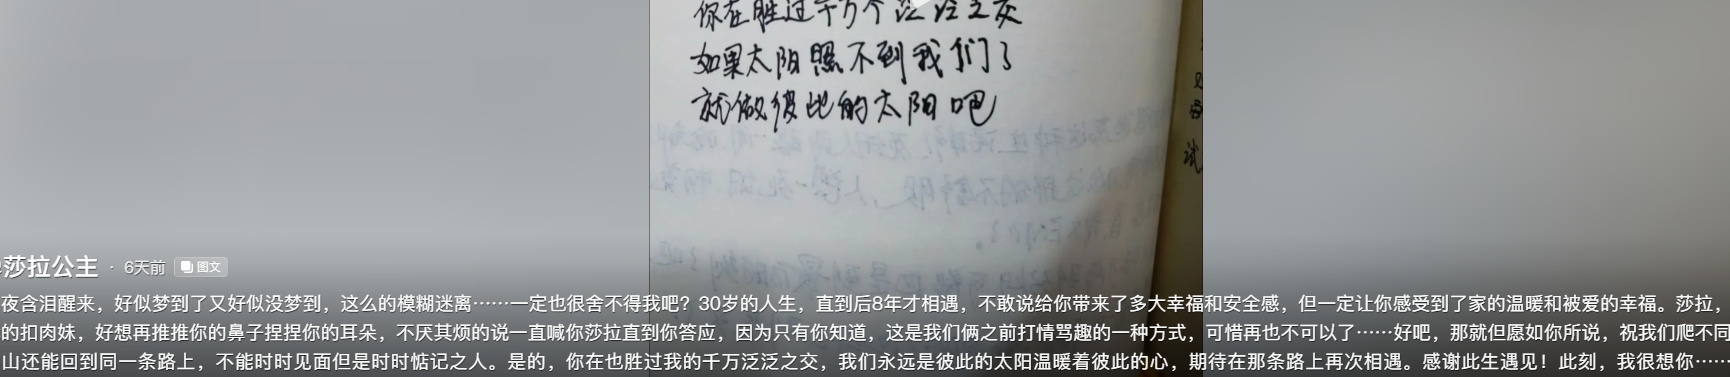 你在胜过千万个泛泛之交
如果太阳照不到我们了
就做彼此的太阳吧
试
莎拉公主 · 6天前 图文
夜含泪醒来，好似梦到了又好似没梦到，这么的模糊迷离……一定也很舍不得我吧？30岁的人生，直到后8年才相遇，不敢说给你带来了多大幸福和安全感，但一定让你感受到了家的温暖和被爱的幸福。莎拉，
的扣肉妹，好想再推推你的鼻子捏捏你的耳朵，不厌其烦的说一直喊你莎拉直到你答应，因为只有你知道，这是我们俩之前打情骂趣的一种方式，可惜再也不可以了……好吧，那就但愿如你所说，祝我们爬不同
山还能回到同一条路上，不能时时见面但是时时惦记之人。是的，你在也胜过我的千万泛泛之交，我们永远是彼此的太阳温暖着彼此的心，期待在那条路上再次相遇。感谢此生遇见！此刻，我很想你……